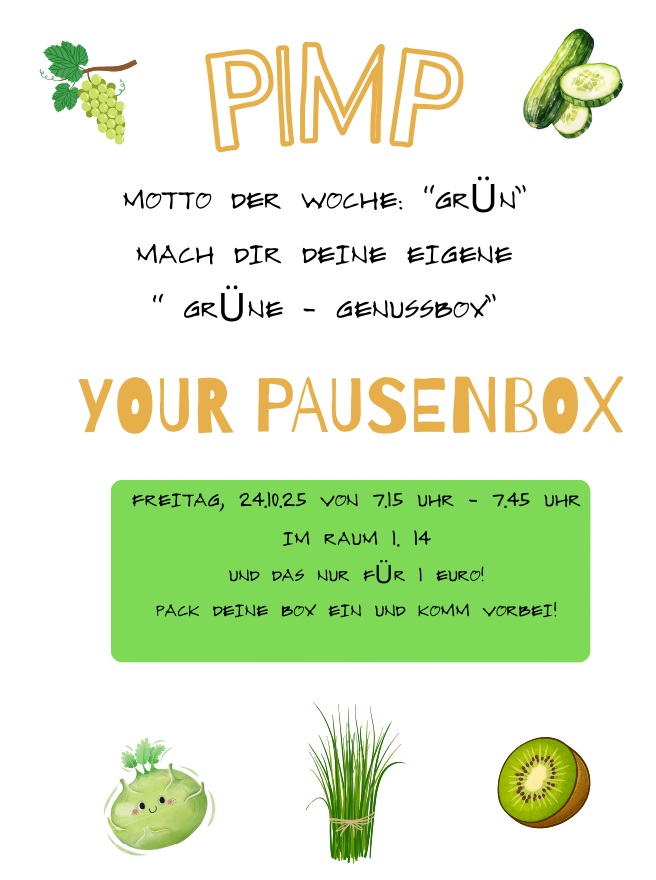 PIMP
MOTTO DER WOCHE: "GRÜN"
MACH DIR DEINE EIGENE
" GRÜNE - GENUSSBOX"
YOUR PAUSENBOX
FREITAG, 24.10.25 VON 7.15 UHR - 7.45 UHR
IM RAUM 1. 14
UND DAS NUR FÜR 1 EURO!
PACK DEINE BOX EIN UND KOMM VORBEI!